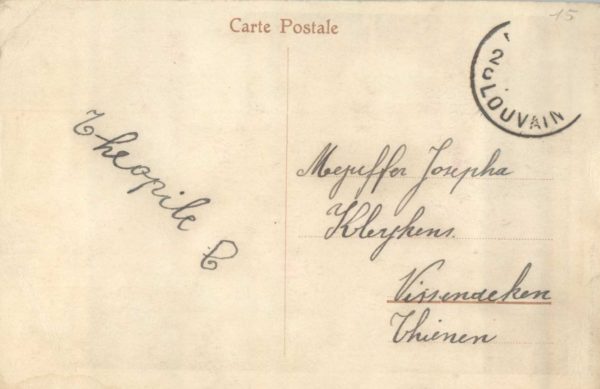 Carte Postale
15
2
LOUVAIN
Theopile C
Mejuffer Josepha
Kleykens
Vissenaeken
Thienen